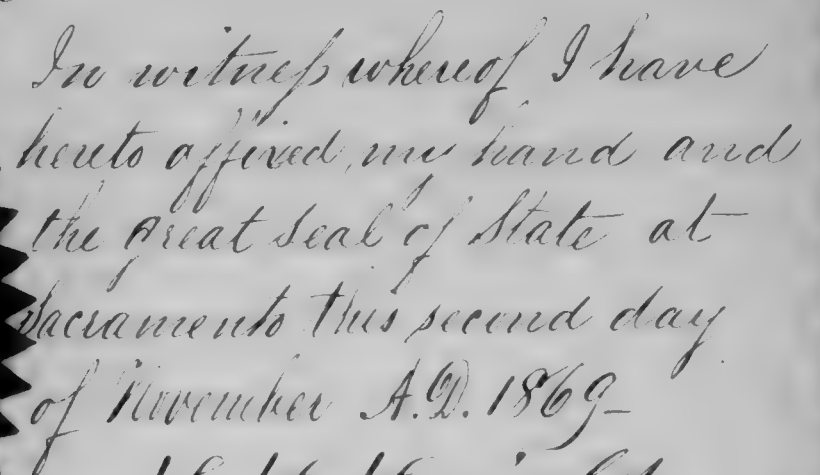 In witness whereof I have
hereto affixed my hand and
the great Seal of State at
Sacramento this second day
of November A.D. 1869—